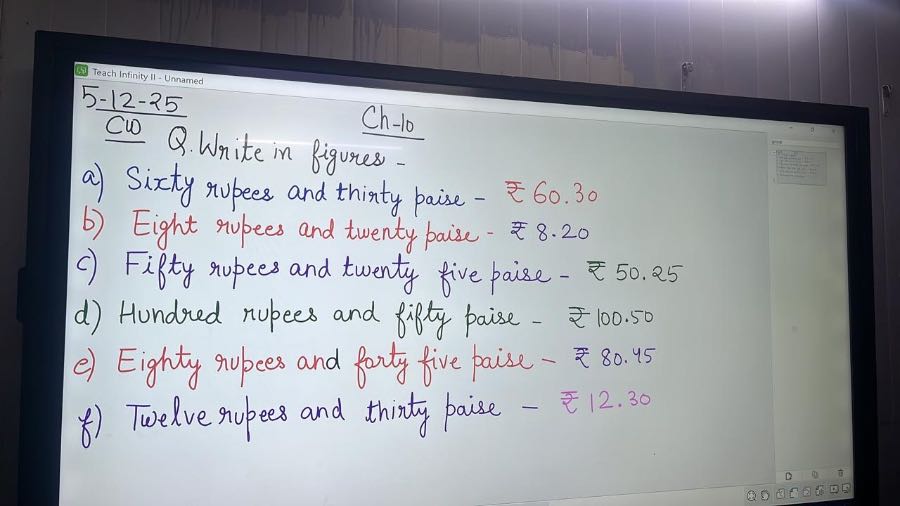 Teach Infinity II - Unnamed
5-12-25
CW
Ch-10
Q. Write in figures -
a) Sixty rupees and thirty paise - ₹ 60.30
b) Eight rupees and twenty paise - ₹ 8.20
c) Fifty rupees and twenty five paise - ₹ 50.25
d) Hundred rupees and fifty paise - ₹ 100.50
e) Eighty rupees and forty five paise - ₹ 80.45
f) Twelve rupees and thirty paise - ₹ 12.30